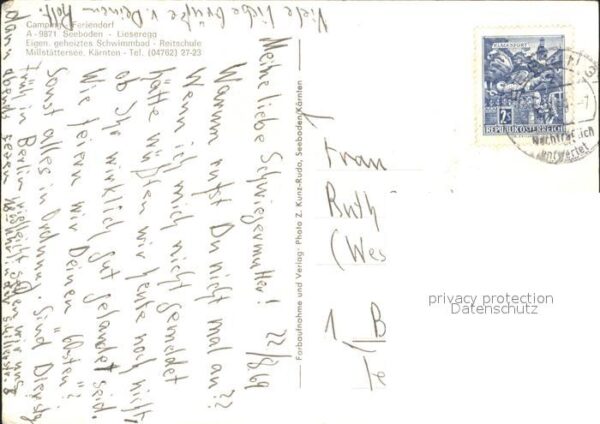 Camping - Feriendorf
A - 9871 Seeboden - Lieseregg
Eigen. geheiztes Schwimmbad - Reitschule
Millstättersee, Kärnten - Tel. (04762) 27-23
22/8 69
Meine liebe Schwiegermutter!
Warum rufst Du nicht mal an??
Wenn ich mich nicht gemeldet
hätte wüßten wir heute noch nicht,
ob Ihr wirklich gut gelandet seid.
Wie feiern wir Deinen 60sten?
Sonst alles in Ordnung. Sind Dienstag
früh in Berlin vielleicht sehen wir uns
dann abends gegen
Viele liebe Grüße v. Deinem
Farbaufnahme und Verlag: Photo Z. Kunz-Ruda, Seeboden/Kärnten
KLAGENFURT
2S
REPUBLIK ÖSTERREICH
Nachträglich
entwertet
Frau
Ruth
(Wes
1 B
privacy protection
Datenschutz